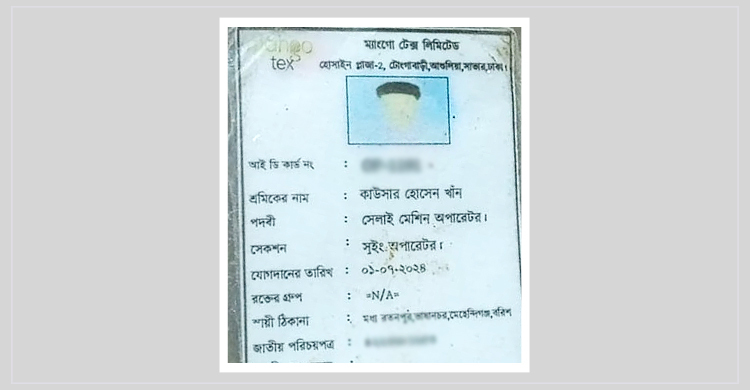 ম্যাংগো টেক্স লিমিটেড
tex
হোসাইন প্লাজা-2, টোংগাবাড়ী,আশুলিয়া,সাভার,ঢাকা।
আই ডি কার্ড নং :
শ্রমিকের নাম : কাউসার হোসেন খাঁন
পদবী : সেলাই মেশিন অপারেটর।
সেকশন : সুইং অপারেটর।
যোগদানের তারিখ : ০১-০৭-২০২৪
রক্তের গ্রুপ : =N/A=
স্থায়ী ঠিকানা : মধ্য রতনপুর,ভাষানচর,মেহেন্দিগঞ্জ,বরিশ
জাতীয় পরিচয়পত্র :